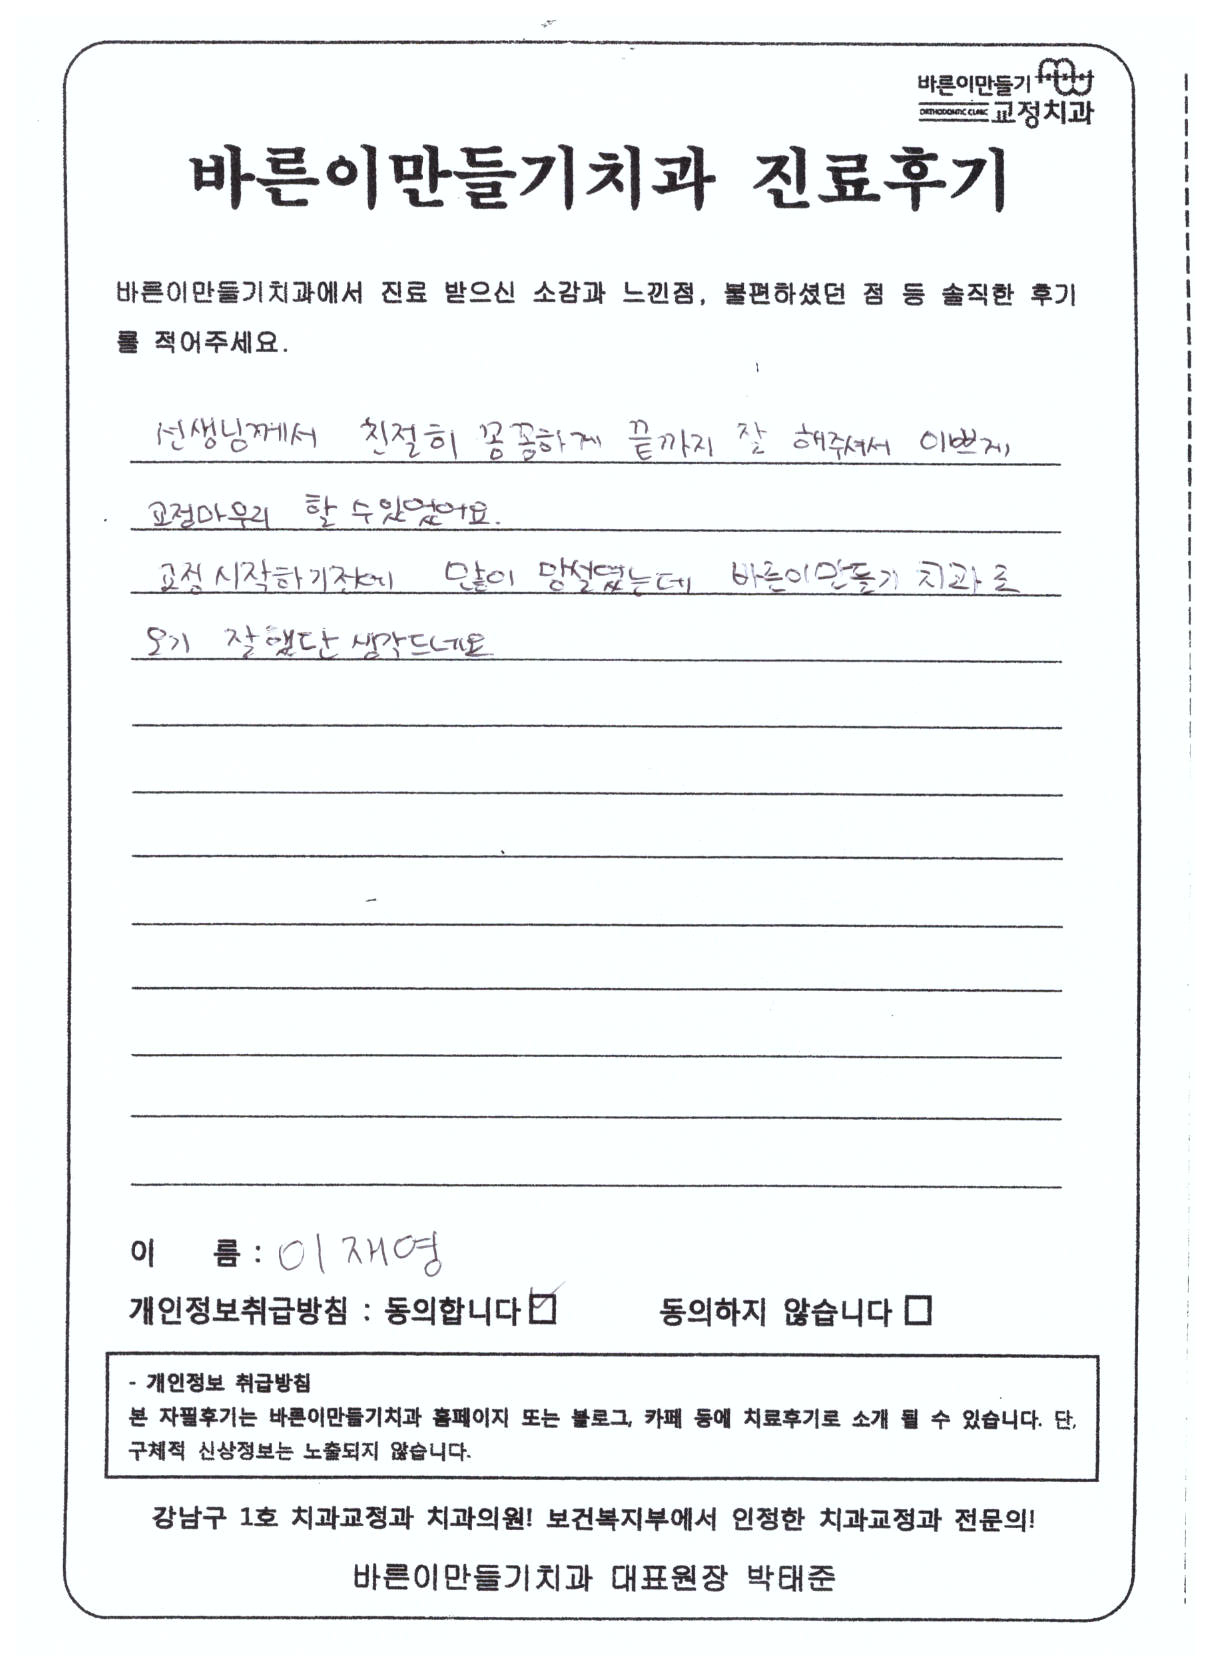 바른이만들기
ORTHODONTIC CLINIC 교정치과
바른이만들기치과 진료후기
바른이만들기치과에서 진료 받으신 소감과 느낀점, 불편하셨던 점 등 솔직한 후기
를 적어주세요.
선생님께서 친절히 꼼꼼하게 끝까지 잘 해주셔서 이쁘게
교정마무리 할 수있었어요.
교정 시작하기전에 많이 망설였는데 바른이만들기 치과로
오기 잘했단 생각드네요
이 름 : 이재영
개인정보취급방침 : 동의합니다 ☑ 동의하지 않습니다 □
- 개인정보 취급방침
본 자필후기는 바른이만들기치과 홈페이지 또는 블로그, 카페 등에 치료후기로 소개 될 수 있습니다. 단,
구체적 신상정보는 노출되지 않습니다.
강남구 1호 치과교정과 치과의원! 보건복지부에서 인정한 치과교정과 전문의!
바른이만들기치과 대표원장 박태준